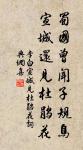 蜀國曾聞子規鳥
宣城還見杜鵑花
李白宣城見杜鵑花詞
典調集